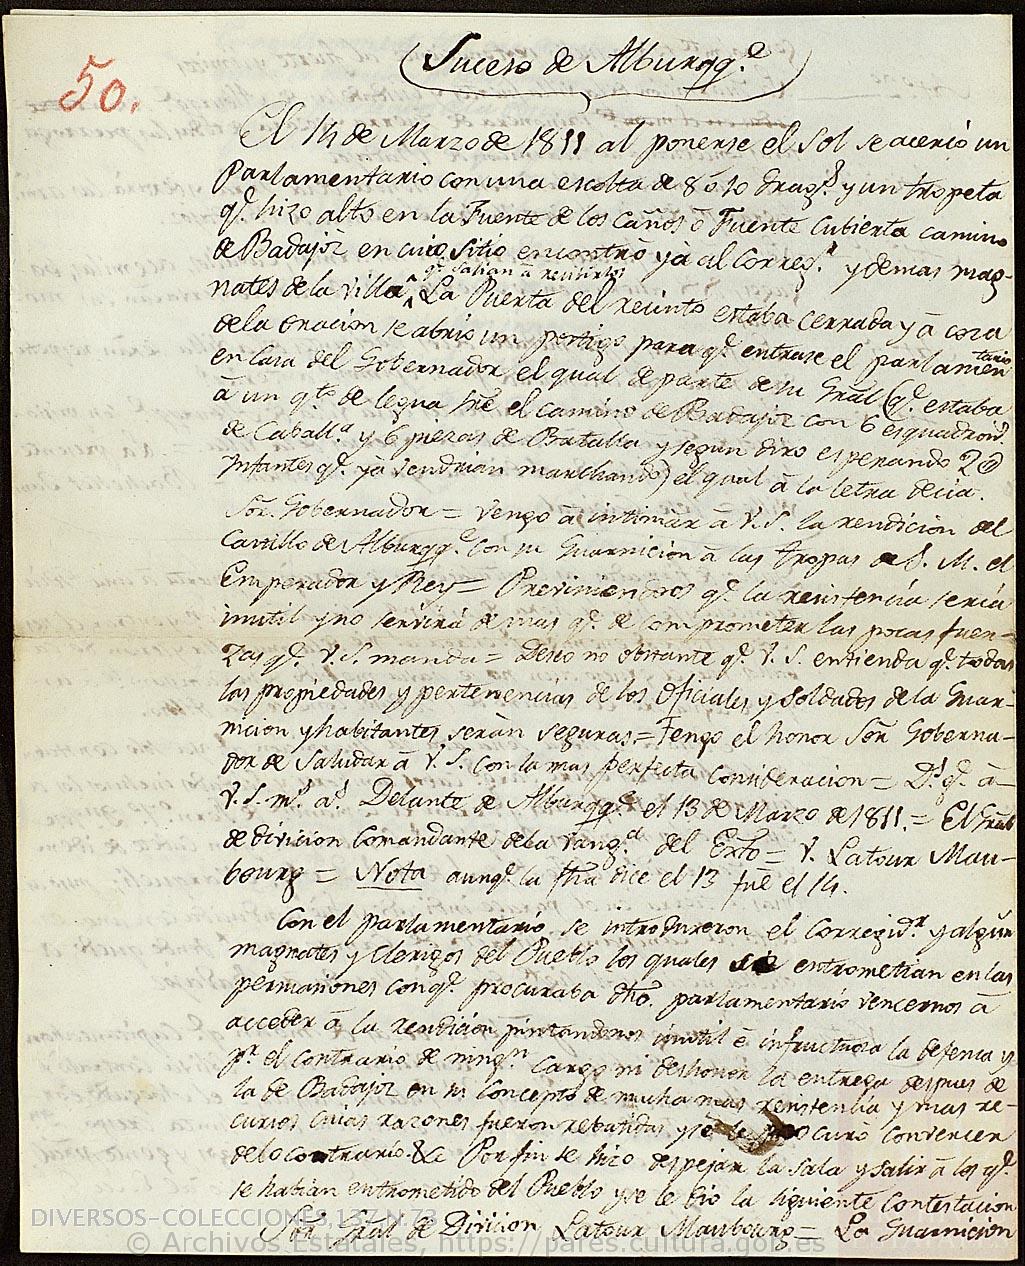 50.
Suceso de Alburqq.e
El 14 de Marzo de 1811 al ponerse el Sol se acercó un
Parlamentario con una escolta de 8 ó 10 Drag.s y un trompeta
q.e hizo alto en la Fuente de los caños ó Fuente Cubierta camino
de Badajòz en cuio sitio encontrò yà al Correg.r y demas mag-
q.e salian à recivirlos
nates de la villa. La Puerta del recinto estaba cerrada y à cosa
de la oracion se abriò un postigo para q.e entrase el parlamen
tario
en casa del Gobernador el qual de parte de su Gràl (q.e estaba
à un q.to de legua sre el camino de Badajoz con 6 esquadron.s
de Caball.a y 6 piezas de Batalla y segun dixo esperando 2@
Infantes q.e yà vendrian marchando) el qual à la letra decia.
Sor. Gobernador = Vengo à intimar à V.S. la rendicion del
Castillo de Alburqq.e con su Guarnicion à las tropas de S. M. el
Emperador y Rey = Previniendoos q.e la resistencia seria
inutil y no servirá de mas q.e de comprometer las pocas fuer-
zas q.e V. S. manda = Deseo no obstante q.e V. S. entienda q.e todas
las propiedades y pertenencias de los Oficiales y Soldados de la Guar-
nicion y habitantes seràn seguras = Tengo el honor Sor Goberna-
dor de Saludar à V. S. con la mas perfecta consideracion = D.s g.e à
V. S. m.s a.s Delante de Alburqq.e el 13 de Marzo de 1811. = El Gràl
de division Comandante de la Vang.a del Exto = V. Latour Mau-
bourg = Nota aunq.e la fha dice el 13 fuè el 14.
Con el parlamentario se introduxeron el Corregid.r y algun
magnates y Clerigos del Pueblo los quales se entrometian en las
persuasiones con q.e procuraba dho. parlamentario vencernos à
acceder à la rendicion pintandonos inutil è infructuosa la defensa y
p.r el contrario de ning.n cargo ni deshonor la entrega despues de
la de Badajoz en su concepto de mucha mas resistencia y mas re-
cursos cuias razones fueron rebatidas y se le procurò convencer
de lo contrario. &c Por fin se hizo despejar la sala y salir à los q.e
se habian entrometido del Pueblo y se le diò la siguiente Contestacion
Sor. Gràl de Division Latour Maubourg = La Guarnicion
DIVERSOS-COLECCIONES,137,N.73
© Archivos Estatales, https://pares.cultura.gob.es